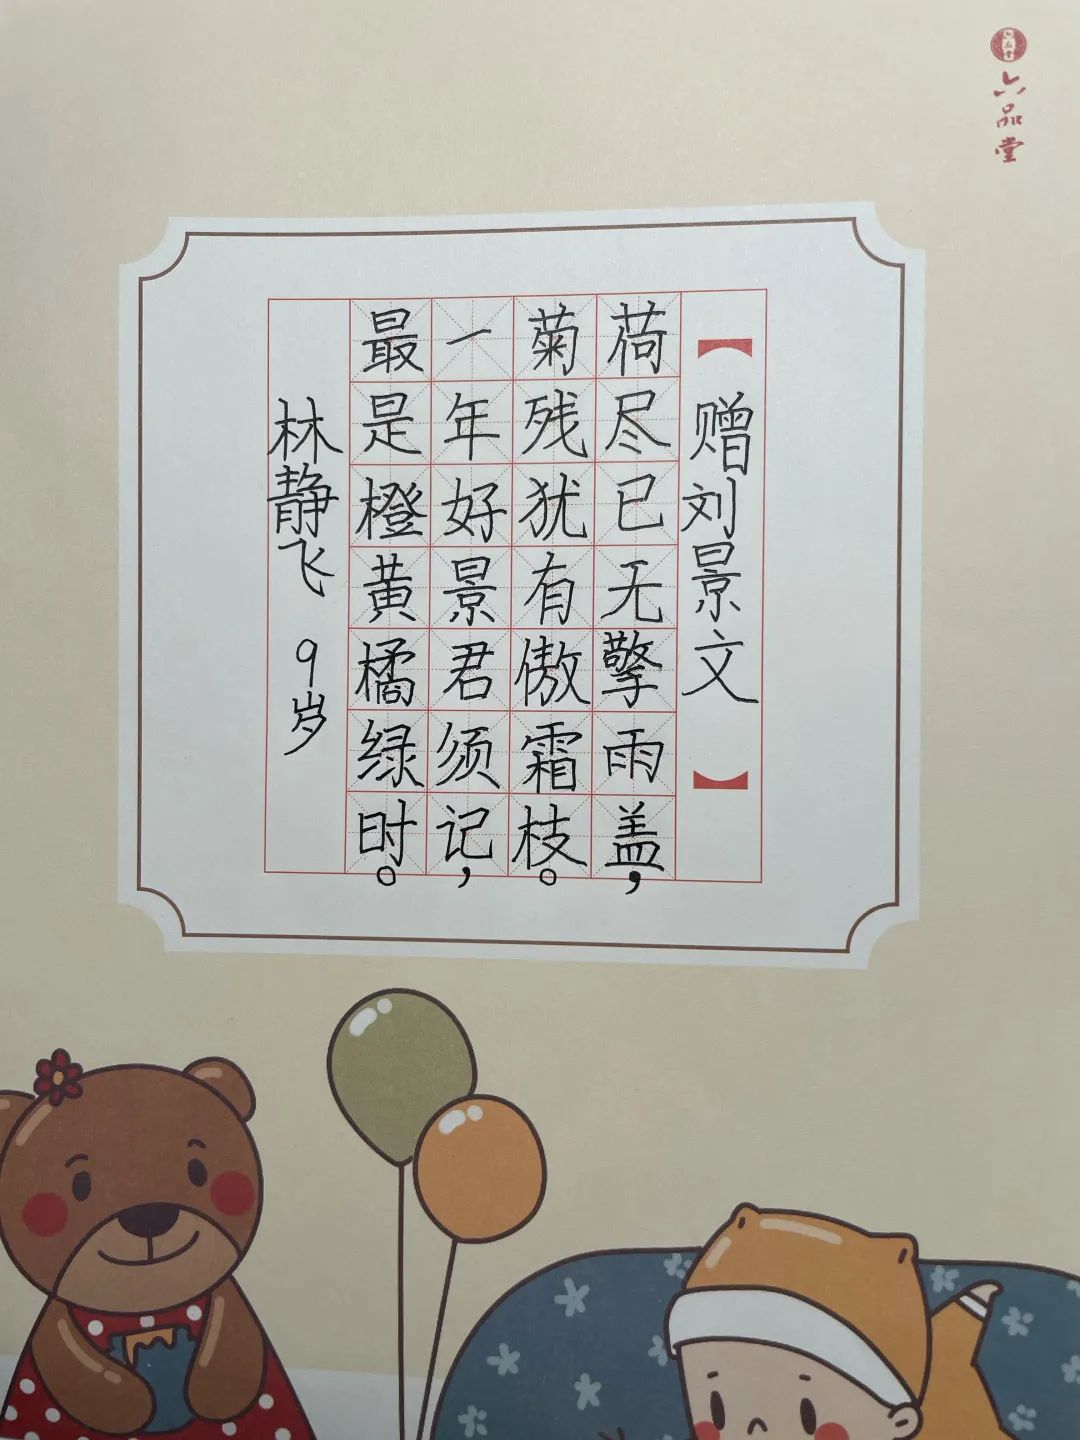 六品堂
【赠刘景文】
荷尽已无擎雨盖，
菊残犹有傲霜枝。
一年好景君须记，
最是橙黄橘绿时。
林静飞 9岁